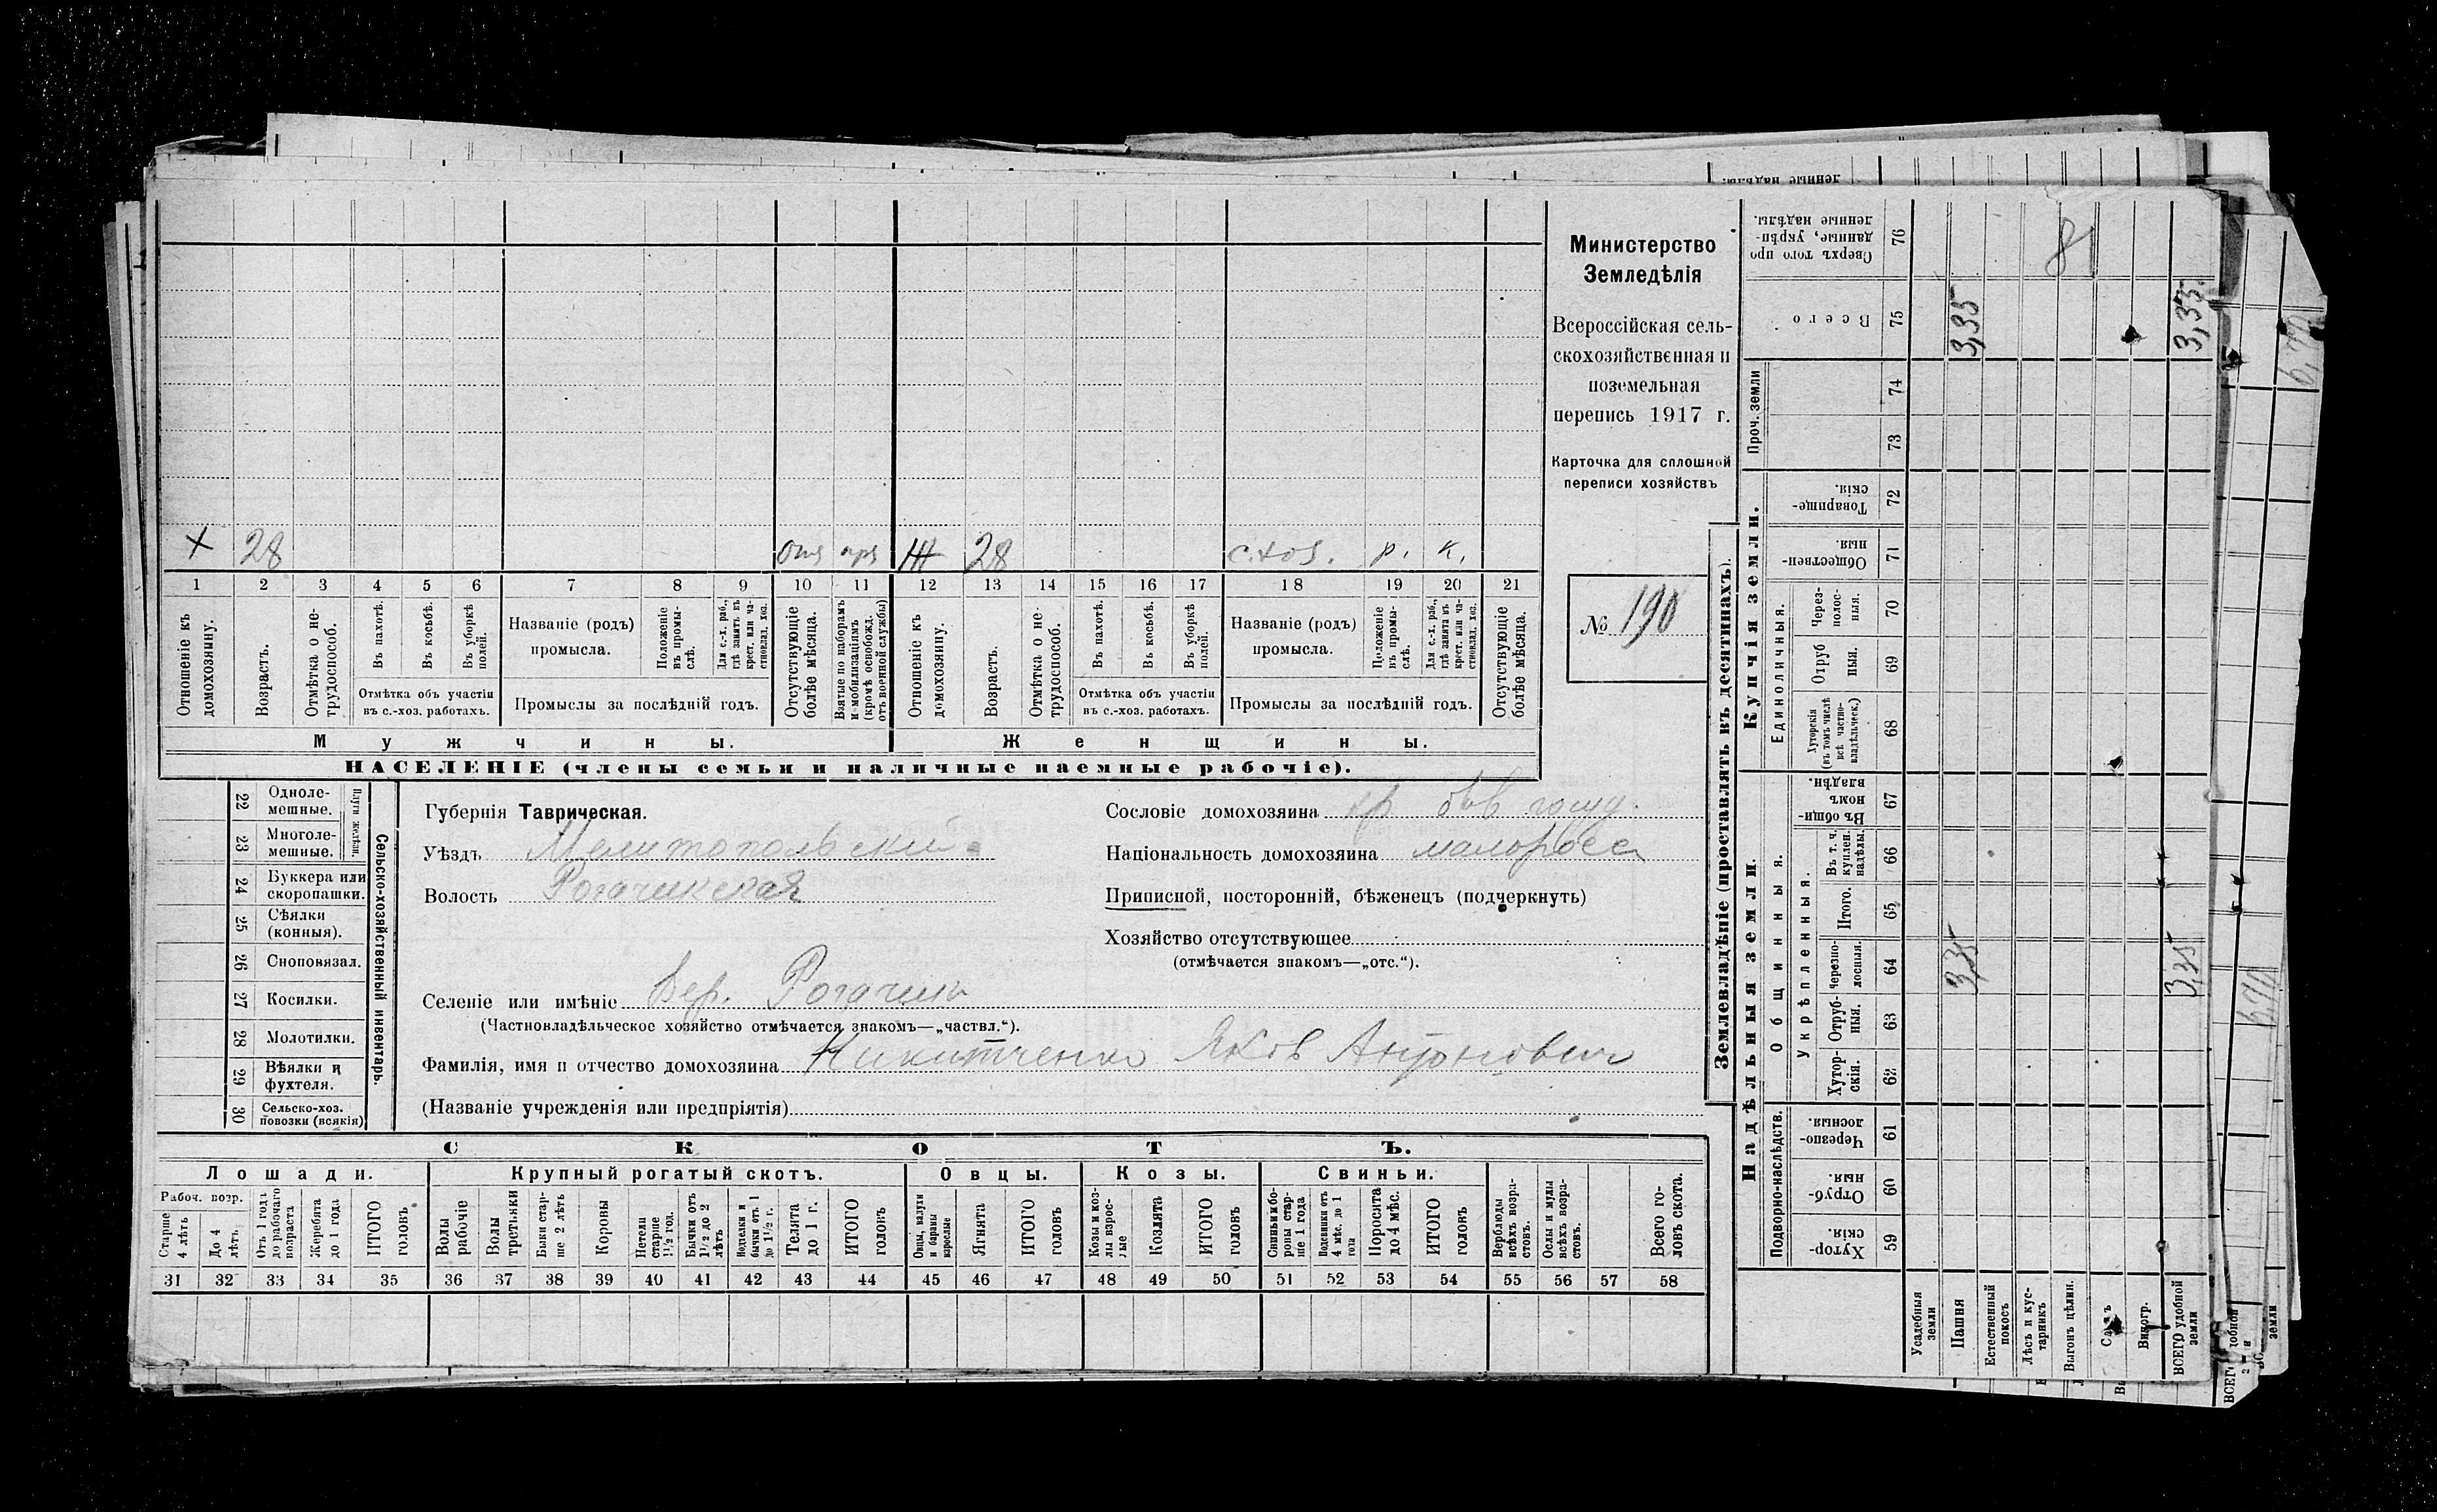 Министерство
Земледѣлія
Всероссійская сель-
скохозяйственная и
поземельная
перепись 1917 г.
Карточка для сплошной
переписи хозяйствъ
№ 190
Х 28 отс Ж 28 с.хоз. р. к.
1 2 3 4 5 6 7 8 9 10 11 12 13 14 15 16 17 18 19 20 21
Отношеніе къ домохозяину.
Возрастъ.
Отмѣтка о не-трудоспособ.
Въ пахотѣ.
Въ косьбѣ.
Въ уборкѣ полей.
Отмѣтка объ участіи
въ с.-хоз. работахъ.
Названіе (родъ)
промысла.
Положеніе въ промы-слѣ.
Для с.-х. раб., гдѣ занятъ въ крест. или ча-стновлад. хоз.
Промыслы за послѣдній годъ.
Отсутствующіе болѣе мѣсяца.
Взятые по наборамъ и мобилизаціямъ (кромѣ освобожд. отъ военной службы)
Отношеніе къ домохозяину.
Возрастъ.
Отмѣтка о не-трудоспособ.
Въ пахотѣ.
Въ косьбѣ.
Въ уборкѣ полей.
Отмѣтка объ участіи
въ с.-хоз. работахъ.
Названіе (родъ)
промысла.
Положеніе въ промы-слѣ.
Для с.-х. раб., гдѣ занята въ крест. или ча-стновлад. хоз.
Промыслы за послѣдній годъ.
Отсутствующіе болѣе мѣсяца.
Мужчины. Женщины.
НАСЕЛЕНІЕ (члены семьи и наличные наемные рабочіе).
22 Одноле-мешные.
23 Многоле-мешные.
Плуги желѣзн.
24 Буккера или скоропашки.
25 Сѣялки (конныя).
26 Сноповязал.
27 Косилки.
28 Молотилки.
29 Вѣялки и фухтеля.
30 Сельско-хоз. повозки (всякія)
Сельско-хозяйственный инвентарь.
Губернія Таврическая.
Уѣздъ Мелитопольскій
Волость Рогачикская
Сословіе домохозяина кр. быв. госуд.
Національность домохозяина малоросс
Приписной, посторонній, бѣженецъ (подчеркнуть)
Хозяйство отсутствующее
(отмѣчается знакомъ—„отс.“).
Селеніе или имѣніе Вер. Рогачик
(Частновладѣльческое хозяйство отмѣчается знакомъ—„частвл.“).
Фамилія, имя и отчество домохозяина Никитченко Яков Антонович
(Названіе учрежденія или предпріятія)
СКОТЪ.
Лошади. Крупный рогатый скотъ. Овцы. Козы. Свиньи.
Рабоч. возр.
Старше 4 лѣтъ
До 4 лѣтъ.
Отъ 1 года до рабочаго возраста
Жеребята до 1 года
ИТОГО головъ
Волы рабочіе
Волы третьяки
Быки стар-ше 2 лѣтъ
Коровы
Нетели старше 1½ год.
Бычки отъ 1½ до 2 лѣтъ
Подтелки и бычки отъ 1 до 1½ г.
Телята до 1 г.
ИТОГО головъ
Овцы, валухи и бараны взрослые
Ягнята
ИТОГО головъ
Козы и коз-лы взрос-лые
Козлята
ИТОГО головъ
Свиньи и бо-ровы стар-ше 1 года
Подсвинки отъ 4 мѣс. до 1 года
Поросята до 4 мѣс.
ИТОГО головъ
Верблюды всѣхъ возра-стовъ.
Ослы и мулы всѣхъ возра-стовъ.
Всего го-ловъ скота.
31 32 33 34 35 36 37 38 39 40 41 42 43 44 45 46 47 48 49 50 51 52 53 54 55 56 57 58
Землевладѣніе (проставлять въ десятинахъ).
Надѣльныя земли.
Купчія земли.
Проч. земли
Подворно-наслѣдств.
Общинныя.
Укрѣпленныя.
Единоличныя.
Сверхъ того про-данные, укрѣп-ленные надѣлы. 76
Всего 75
74
73
Товарище-скія. 72
Обществен-ныя. 71
Через-полос-ныя. 70
Отруб ныя. 69
Хуторскія (въ томъ числѣ всѣ частно-владѣльческ.) 68
Въ общи-номъ владѣн. 67
Въ т. ч. куплен. надѣлы. 66
Итого. 65
Черезпо-лосныя. 64
Отруб-ныя. 63
Хутор-скія. 62
Черезпо-лосныя. 61
Отруб-ныя. 60
Хутор-скія. 59
Усадебныя земли
Пашня
Естественный покосъ
Лѣсъ и кус-тарникъ
Выгонъ цѣлин.
Садъ
Виногр.
ВСЕГО удобной земли
3,35
3,35
3,35
3,35
81